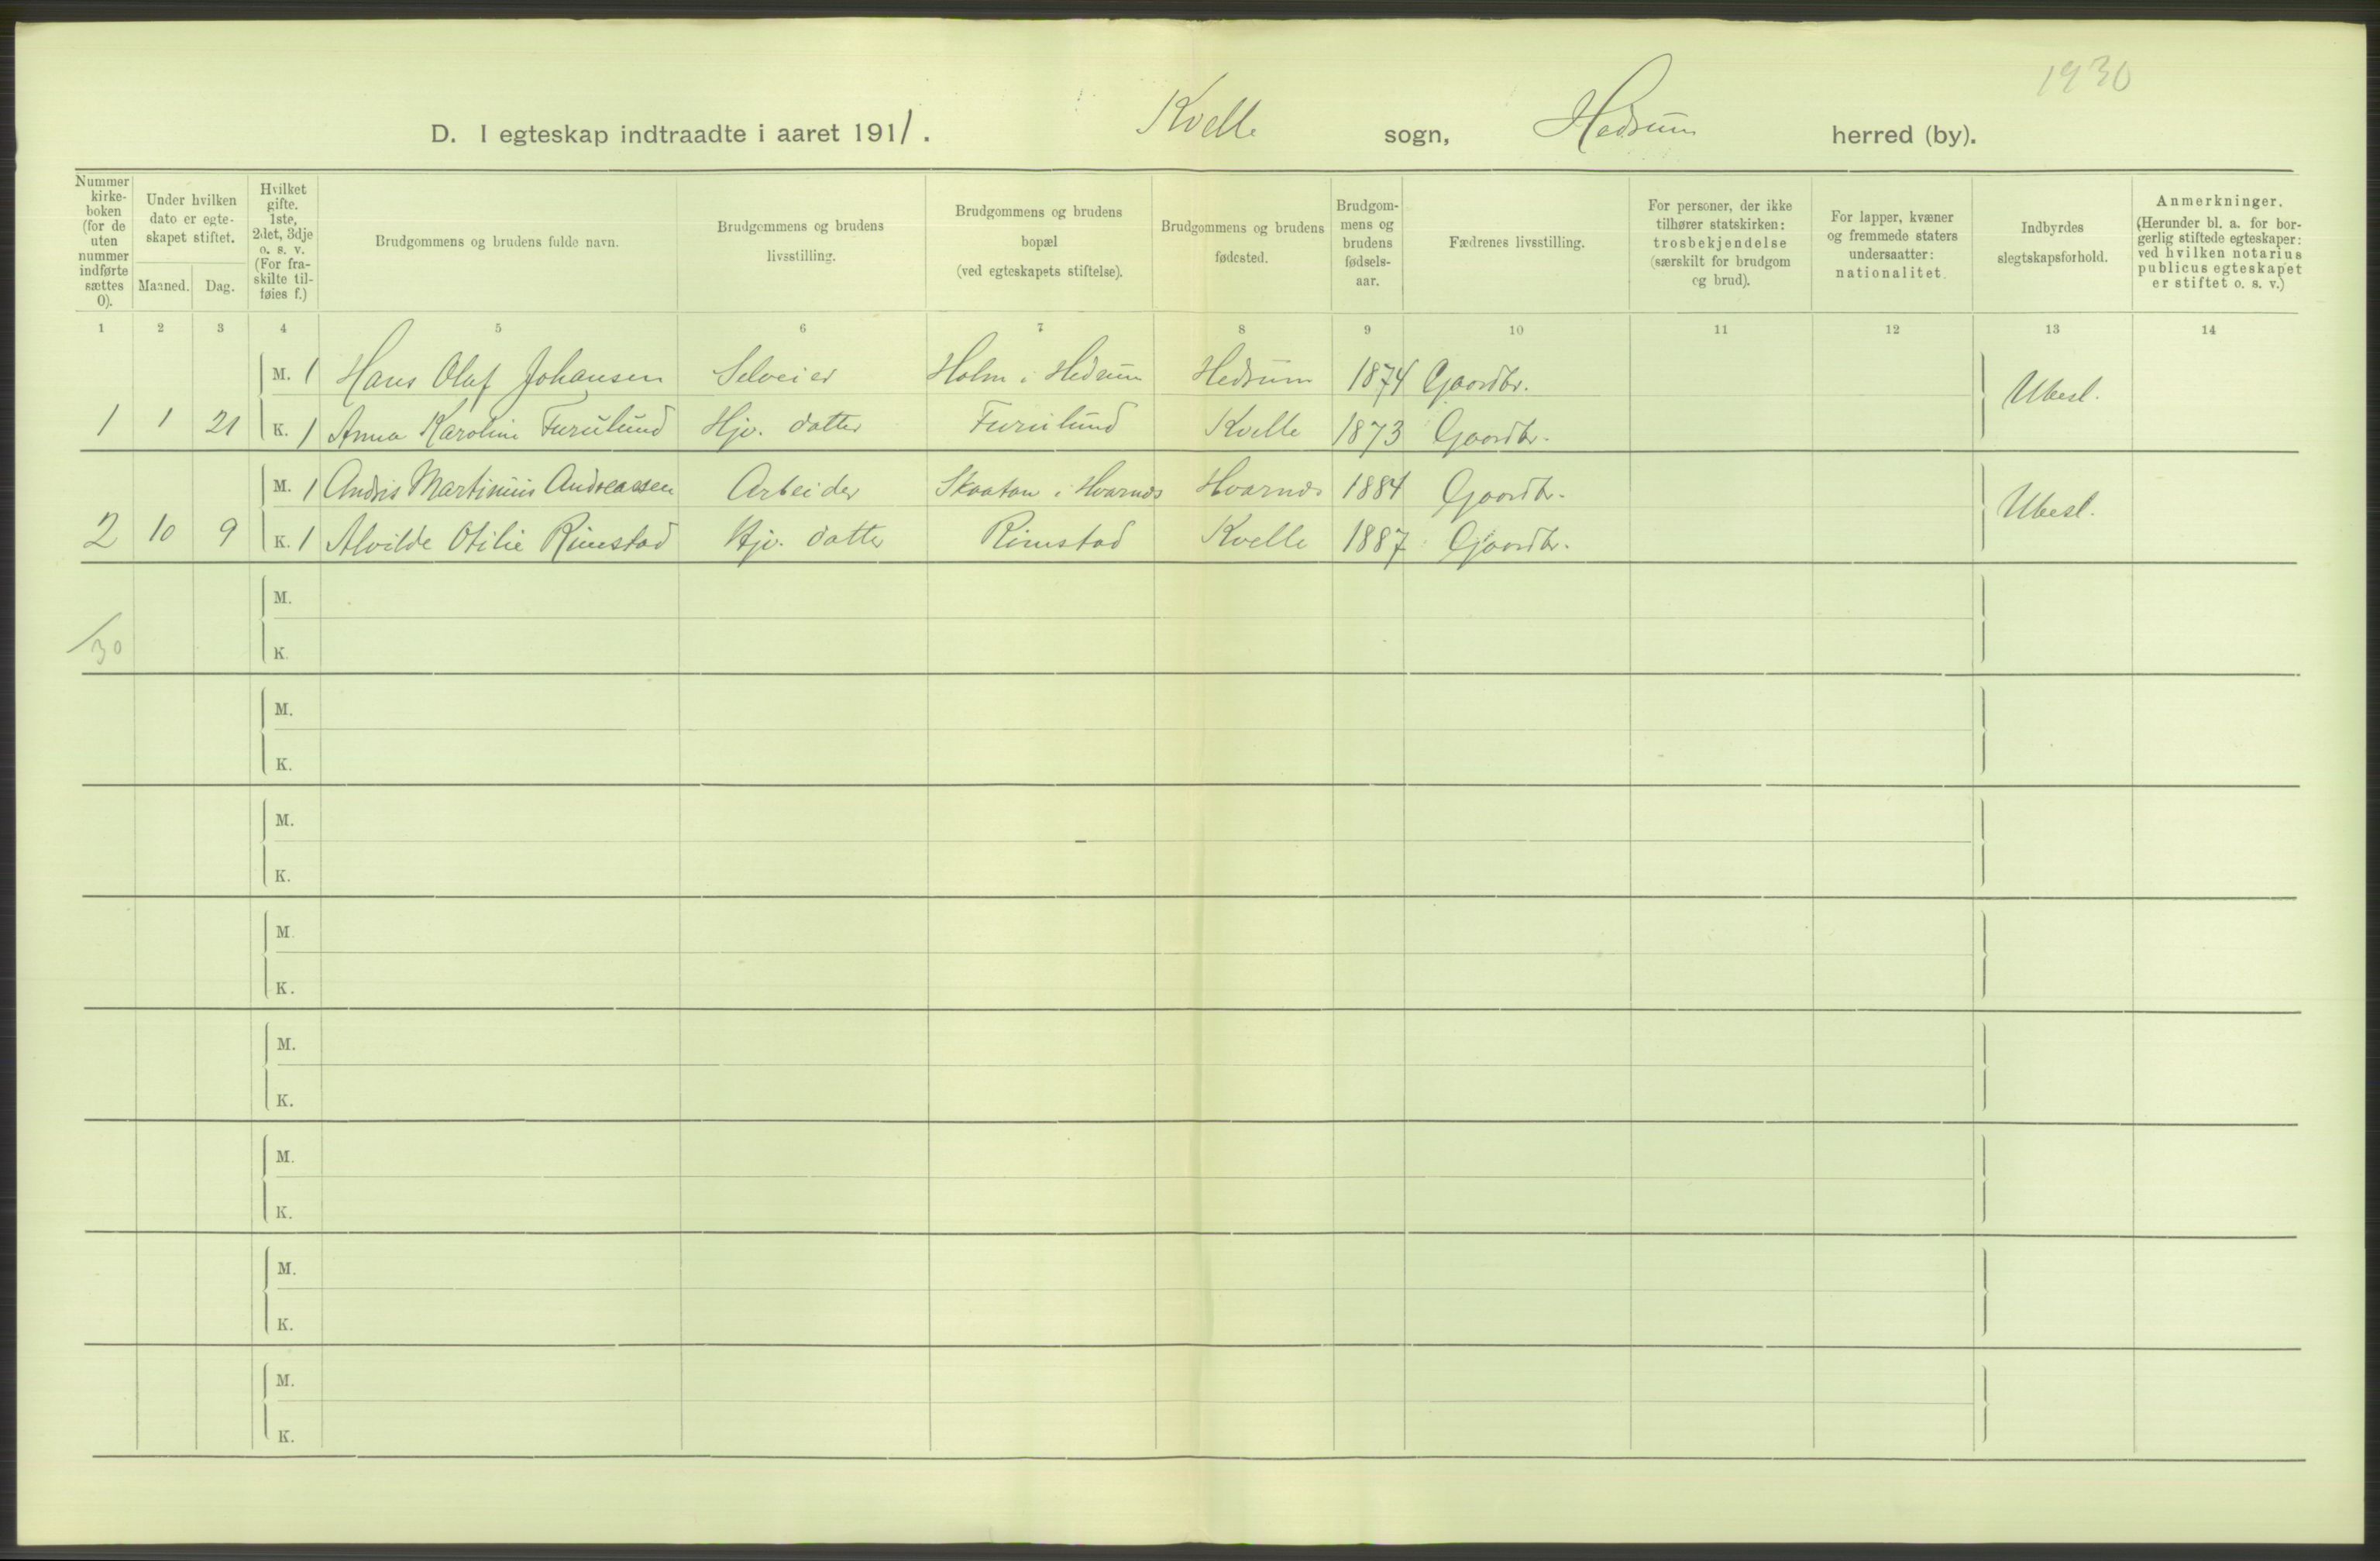 1930
D. I egteskap indtraadte i aaret 1911. Kvelle sogn, Hedrum herred (by).
Nummer kirke-boken (for de uten nummer indførte sættes 0).
Under hvilken dato er egte-skapet stiftet.
Maaned. Dag.
Hvilket gifte. 1ste, 2det, 3dje o. s. v. (For fra-skilte til-føies f.)
Brudgommens og brudens fulde navn.
Brudgommens og brudens livsstilling.
Brudgommens og brudens bopæl (ved egteskapets stiftelse).
Brudgommens og brudens fødested.
Brudgom-mens og brudens fødsels-aar.
Fædrenes livsstilling.
For personer, der ikke tilhører statskirken: trosbekjendelse (særskilt for brudgom og brud).
For lapper, kvæner og fremmede staters undersaatter: nationalitet.
Indbyrdes slegtskapsforhold.
Anmerkninger. (Herunder bl. a. for bor-gerlig stiftede egteskaper: ved hvilken notarius publicus egteskapet er stiftet o. s. v.)
1 2 3 4 5 6 7 8 9 10 11 12 13 14
M. 1 Hans Olaf Johansen Selveier Holm i Hedrum Hedrum 1874 Gaardbr. Ubesl.
1 1 21 K. 1 Anna Karoline Furulund Hjv. datter Furulund Kvelle 1873 Gaardbr.
M. 1 Andris Martinius Andreassen Arbeider Skaatan i Hvarnæs Hvarnæs 1884 Gaardbr. Ubesl.
2 10 9 K. 1 Alvilde Otilie Rimstad Hjv. datter Rimstad Kvelle 1887 Gaardbr.
M.
/30 K.
M.
K.
M.
K.
M.
K.
M.
K.
M.
K.
M.
K.
M.
K.